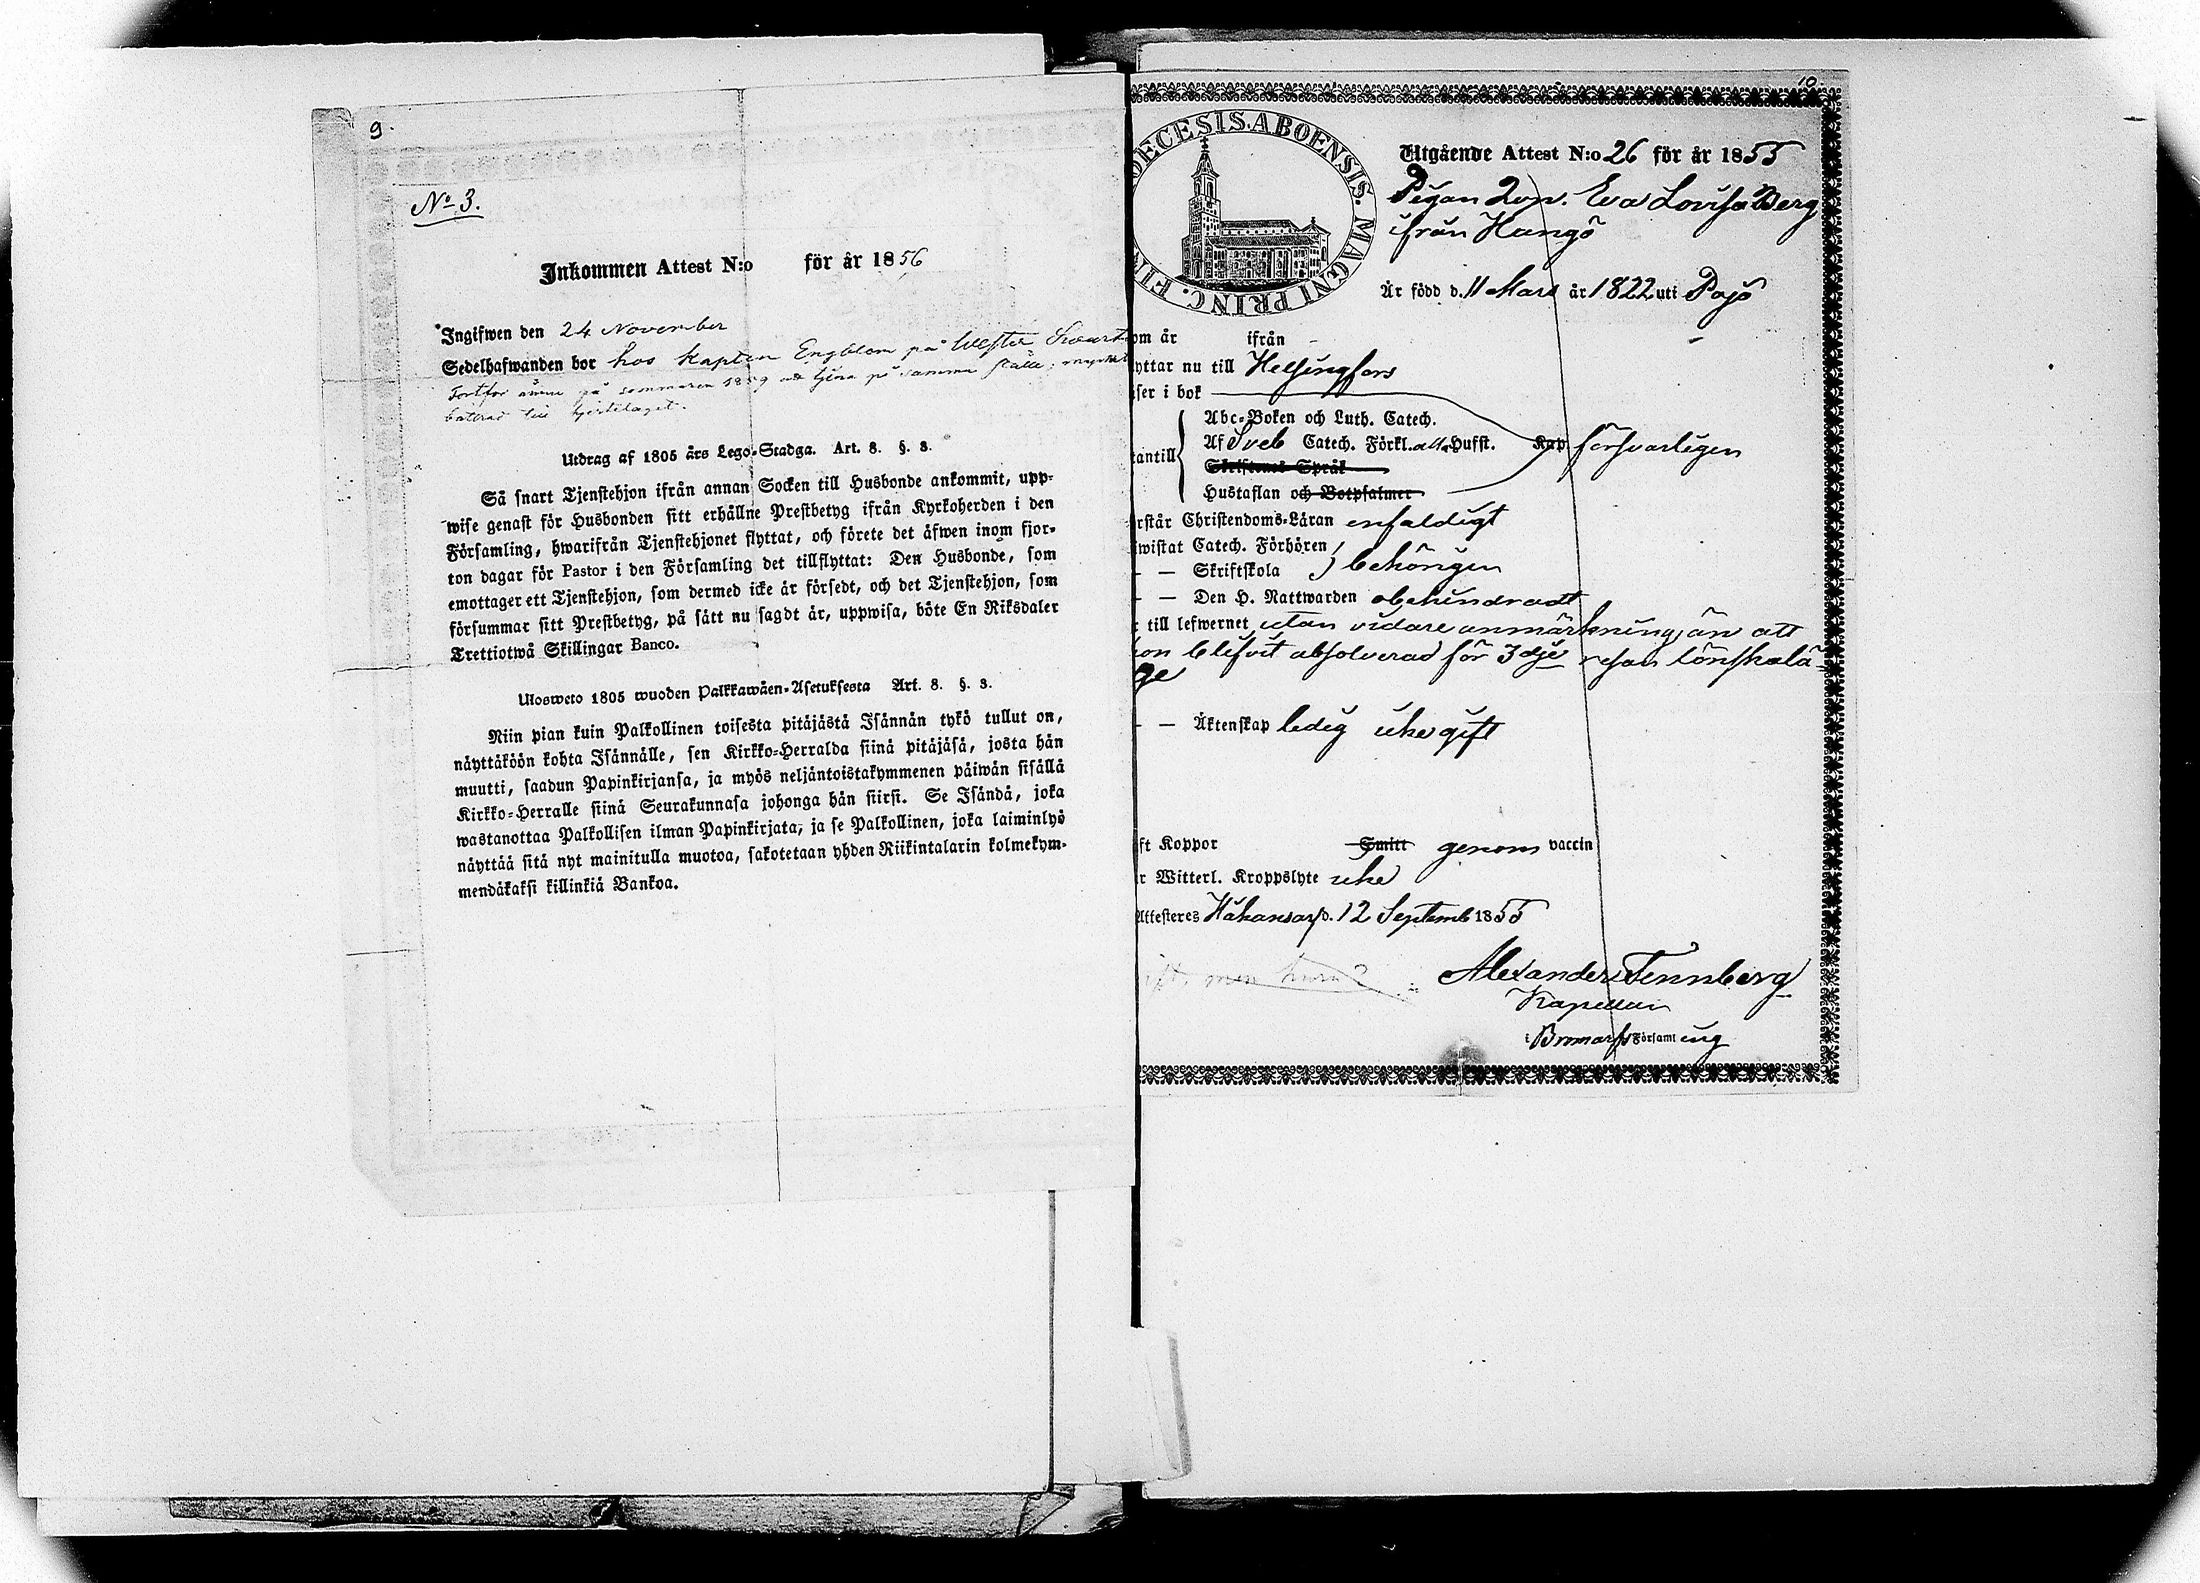 9.
No 3.
Inkommen Attest N:o för år 1856
Ingifwen den 24 November
Sedelhafwanden bor hos Kapten Engblom på Wester
Fortfor ännu på sommaren 1859 att tjena på samma ställe;
Utdrag af 1805 års Lego-Stadga. Art. 8. §. 3.
Så snart Tjenstehjon ifrån annan Socken till Husbonde ankommit, upp-
wise genast för Husbonden sitt erhållne Prestbetyg ifrån Kyrkoherden i den
Församling, hwarifrån Tjenstehjonet flyttat, och förete det äfwen inom fjor-
ton dagar för Pastor i den Församling det tillflyttat: Den Husbonde, som
emottager ett Tjenstehjon, som dermed icke är försedt, och det Tjenstehjon, som
försummar sitt Prestbetyg, på sätt nu sagdt är, uppwisa, böte En Riksdaler
Trettiotwå Skillingar Banco.
Ulosweto 1805 wuoden Palkkawäen-Asetuksesta Art. 8. §. 3.
Niin pian kuin Palkollinen toisesta pitäjästä Isännän tykö tullut on,
näyttäköön kohta Isännälle, sen Kirkko-Herralda siinä pitäjäsä, josta hän
muutti, saadun Papinkirjansa, ja myös neljäntoistakymmenen päiwän sisällä
Kirkko-Herralle siinä Seurakunnasa johonga hän siirsi. Se Isändä, joka
wastanottaa Palkollisen ilman Papinkirjata, ja se Palkollinen, joka laiminlyö
näyttää sitä nyt mainitulla muotoa, sakotetaan yhden Riikintalarin kolmekym-
mendäkaksi killinkiä Bankoa.
10.
OECESIS. ABOENSIS. MAGNI PRINC. FIN
Utgående Attest N:o 26 för år 1855
Pigan Eva Lovisa Berg
ifrån Hangö
Är född d. 11 Mars år 1822 uti Pojo
om år ifrån
yttar nu till Helsingfors
ser i bok
Abc-Boken och Luth. Catech.
Af Sveb Catech. Förkl. Husst. Kap försvarligen
antill
Skriftenes Språk
Hustaflan och Botpsalmer
rstår Christendoms-Läran enfaldigt
wistat Catech. Förhören
— — Skriftskola behörigen
— — Den H. Nattwarden obehindradt
till lefwernet utan vidare anmärkning, än att
on blifvit absolverad för 3dje resan lönskalä-
ge
— — Äktenskap ledig icke gift
ft Koppor Smitt genom vaccin
r Witterl. Kroppslyte icke
Attesteres Håkansarf d. 12 Septemb 1855
men hvem?
Alexander Tennberg
Kapellan
i Bromarfs Församl ing